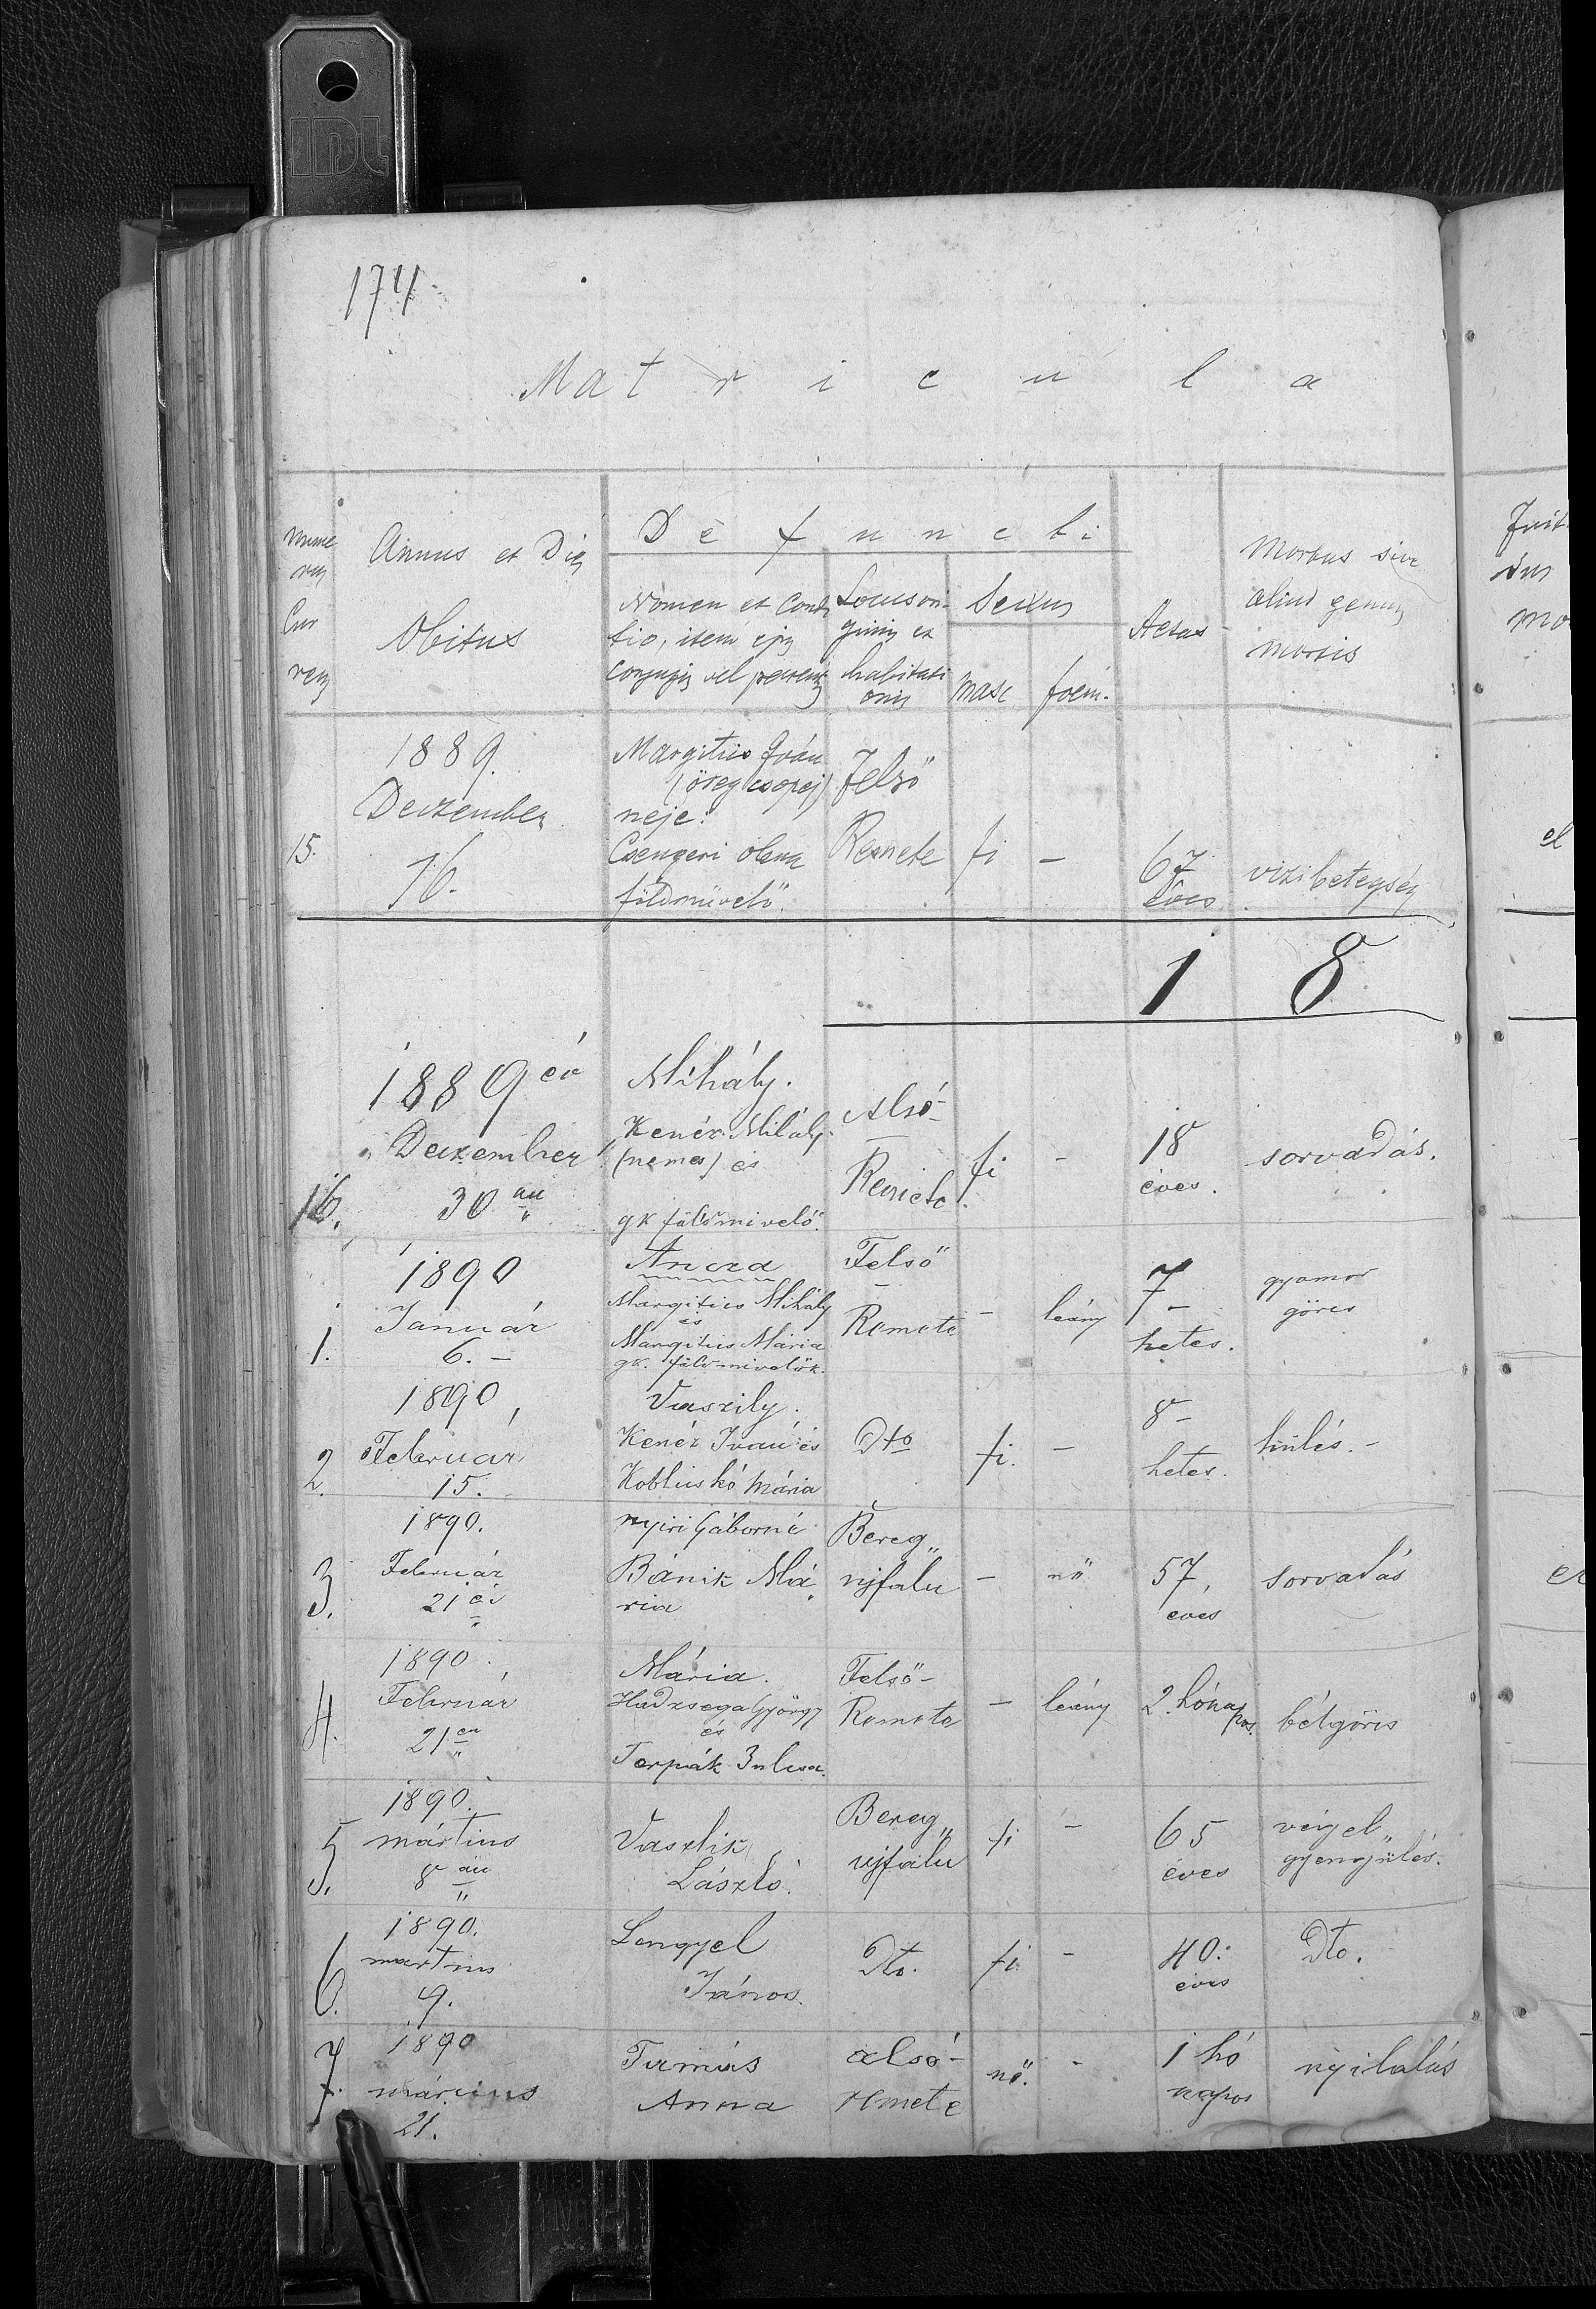 174
Matricula
Nume
rus
Cur
rens
Annus et Dies
Obitus
Defuncti
Nomen et Condi
tio, item ejus
conjugis vel parentis
Locus ori-
ginis et
habitati
onis
Sexus
masc
foem.
Aetas
Morbus sive
aliud genus
mortis
15.
1889.
Dezember
16.
Margitics Iván
(öreg csopej)
neje:
Csengeri Olena
földmüvelö.
Felsö
Remete
fi
-
67
éves
vizibetegség
18
16.
1889 év
Dezember
30 án
Mihály.
Kenéz Mihály
(nemes) és
gk földmivelö.
Alsó-
Remete
fi
-
18
éves.
sorvadás.
1.
1890
Január
6. -
Ancza
Margitics Mihály
és
Margitics Mária
gk. földmivelök.
Felsö
-
Remete
-
leány
7-
hetes.
gyomor
görcs
2.
1890,
Február
15.
Vaszily.
Kenéz Iván és
Kobluskó Mária
Dto
fi.
-
8-
hetes.
hülés. -
3.
1890.
Február
21 én
nyiri Gáborné
Bánik Má„
ria
Bereg„
ujfalu
-
nö
57,
éves
sorvadás
4.
1890.
Február
21 én
Mária.
Hadzsega György
és
Terpák Julcsa.
Felsö-
Remete
-
leány
2. hóna
pos.
bélgörcs
5.
1890.
mártius
8 án
Vaszlik
László.
Bereg„
ujfalu
fi
-
65
éves
végel„
gyengülés.
6.
1890.
martius
9.
Lengyel
János.
Dto.
fi.
-
40.
éves
Dto.
7.
1890
március
21.
Tamás
Anna
alsó-
remete
nö.
-
1 hó
napos
nyilalás